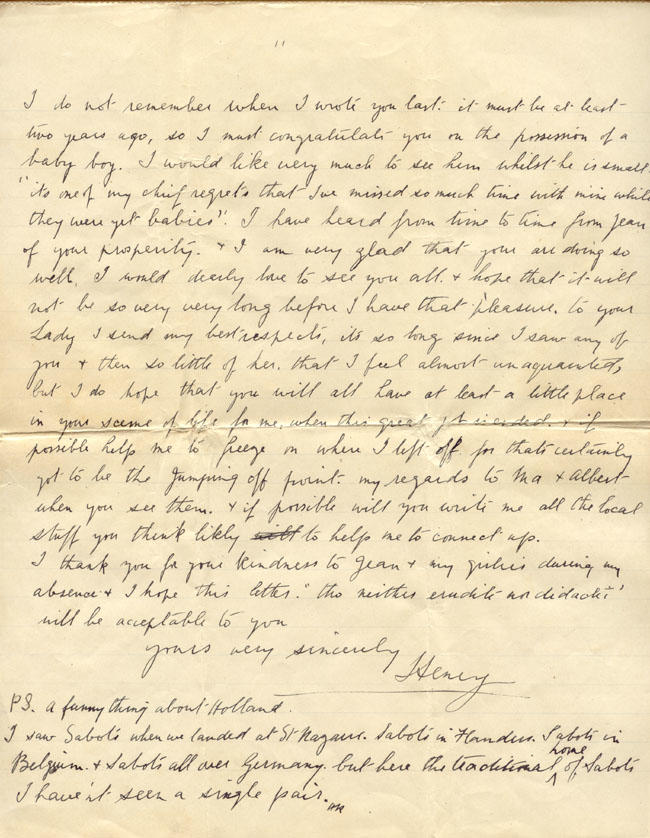 11
I do not remember when I wrote you last. it must be at least
two years ago, so I must congratulate you on the possession of a
baby boy. I would like very much to see him whilst he is small.
"its one of my chief regrets that I've missed so much time with mine while
they were yet babies". I have heard from time to time from Jean
of your prosperity. & I am very glad that your are doing so
well, I would dearly love to see you all. & hope that it will
not be so very very long before I have that pleasure. to your
Lady I send my best respects, its so long since I saw any of
you & then so little of her. that I feel almost unaquainted,
but I do hope that you will all have at least a little place
in your sceme of life for me, when this great is ended. & if
possible help me to freeze on where I left off. for thats certainly
got to be the Jumping off point. my regards to Ma & Albert
when you see them. & if possible will you write me all the local
stuff you think likly to help me to connect up.
I thank you for your kindness to Jean & my girlies during my
absence & I hope this letter. "tho neither erudite nor didactic"
will be acceptable to you
yours very sincerely
Henry
P.S. a funny thing about Holland.
I saw Sabots when we landed at St Nazaire. Sabots in Flanders. Sabots in
Belgium. & Sabots all over Germany. but here the traditional home of Sabots
I have'nt seen a single pair.